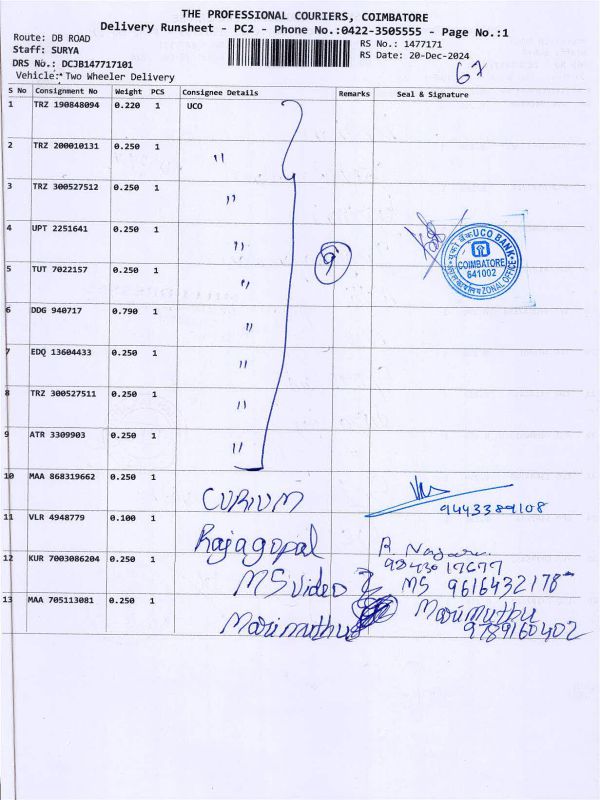 THE PROFESSIONAL COURIERS, COIMBATORE
Delivery Runsheet - PC2 - Phone No.:0422-3505555 - Page No.:1
Route: DB ROAD
RS No.: 1477171
Staff: SURYA
RS Date: 20-Dec-2024
DRS No.: DCJB147717101
Vehicle: Two Wheeler Delivery
67
S No Consignment No Weight PCS Consignee Details Remarks Seal & Signature
1 TRZ 190848094 0.220 1 UCO
2 TRZ 200010131 0.250 1 "
3 TRZ 300527512 0.250 1 "
4 UPT 2251641 0.250 1 "
5 TUT 7022157 0.250 1 "
9
UCO BANK
COIMBATORE
641002
ZONAL OFFICE
6 DDG 940717 0.790 1 "
7 EDQ 13604433 0.250 1 "
8 TRZ 300527511 0.250 1 "
9 ATR 3309903 0.250 1 "
10 MAA 868319662 0.250 1 CURIUM 9443389108
11 VLR 4948779 0.100 1 Rajagopal
12 KUR 7003086204 0.250 1 MS Video MS 9616432178
13 MAA 705113081 0.250 1 Marimuthu Marimuthu
9789160402